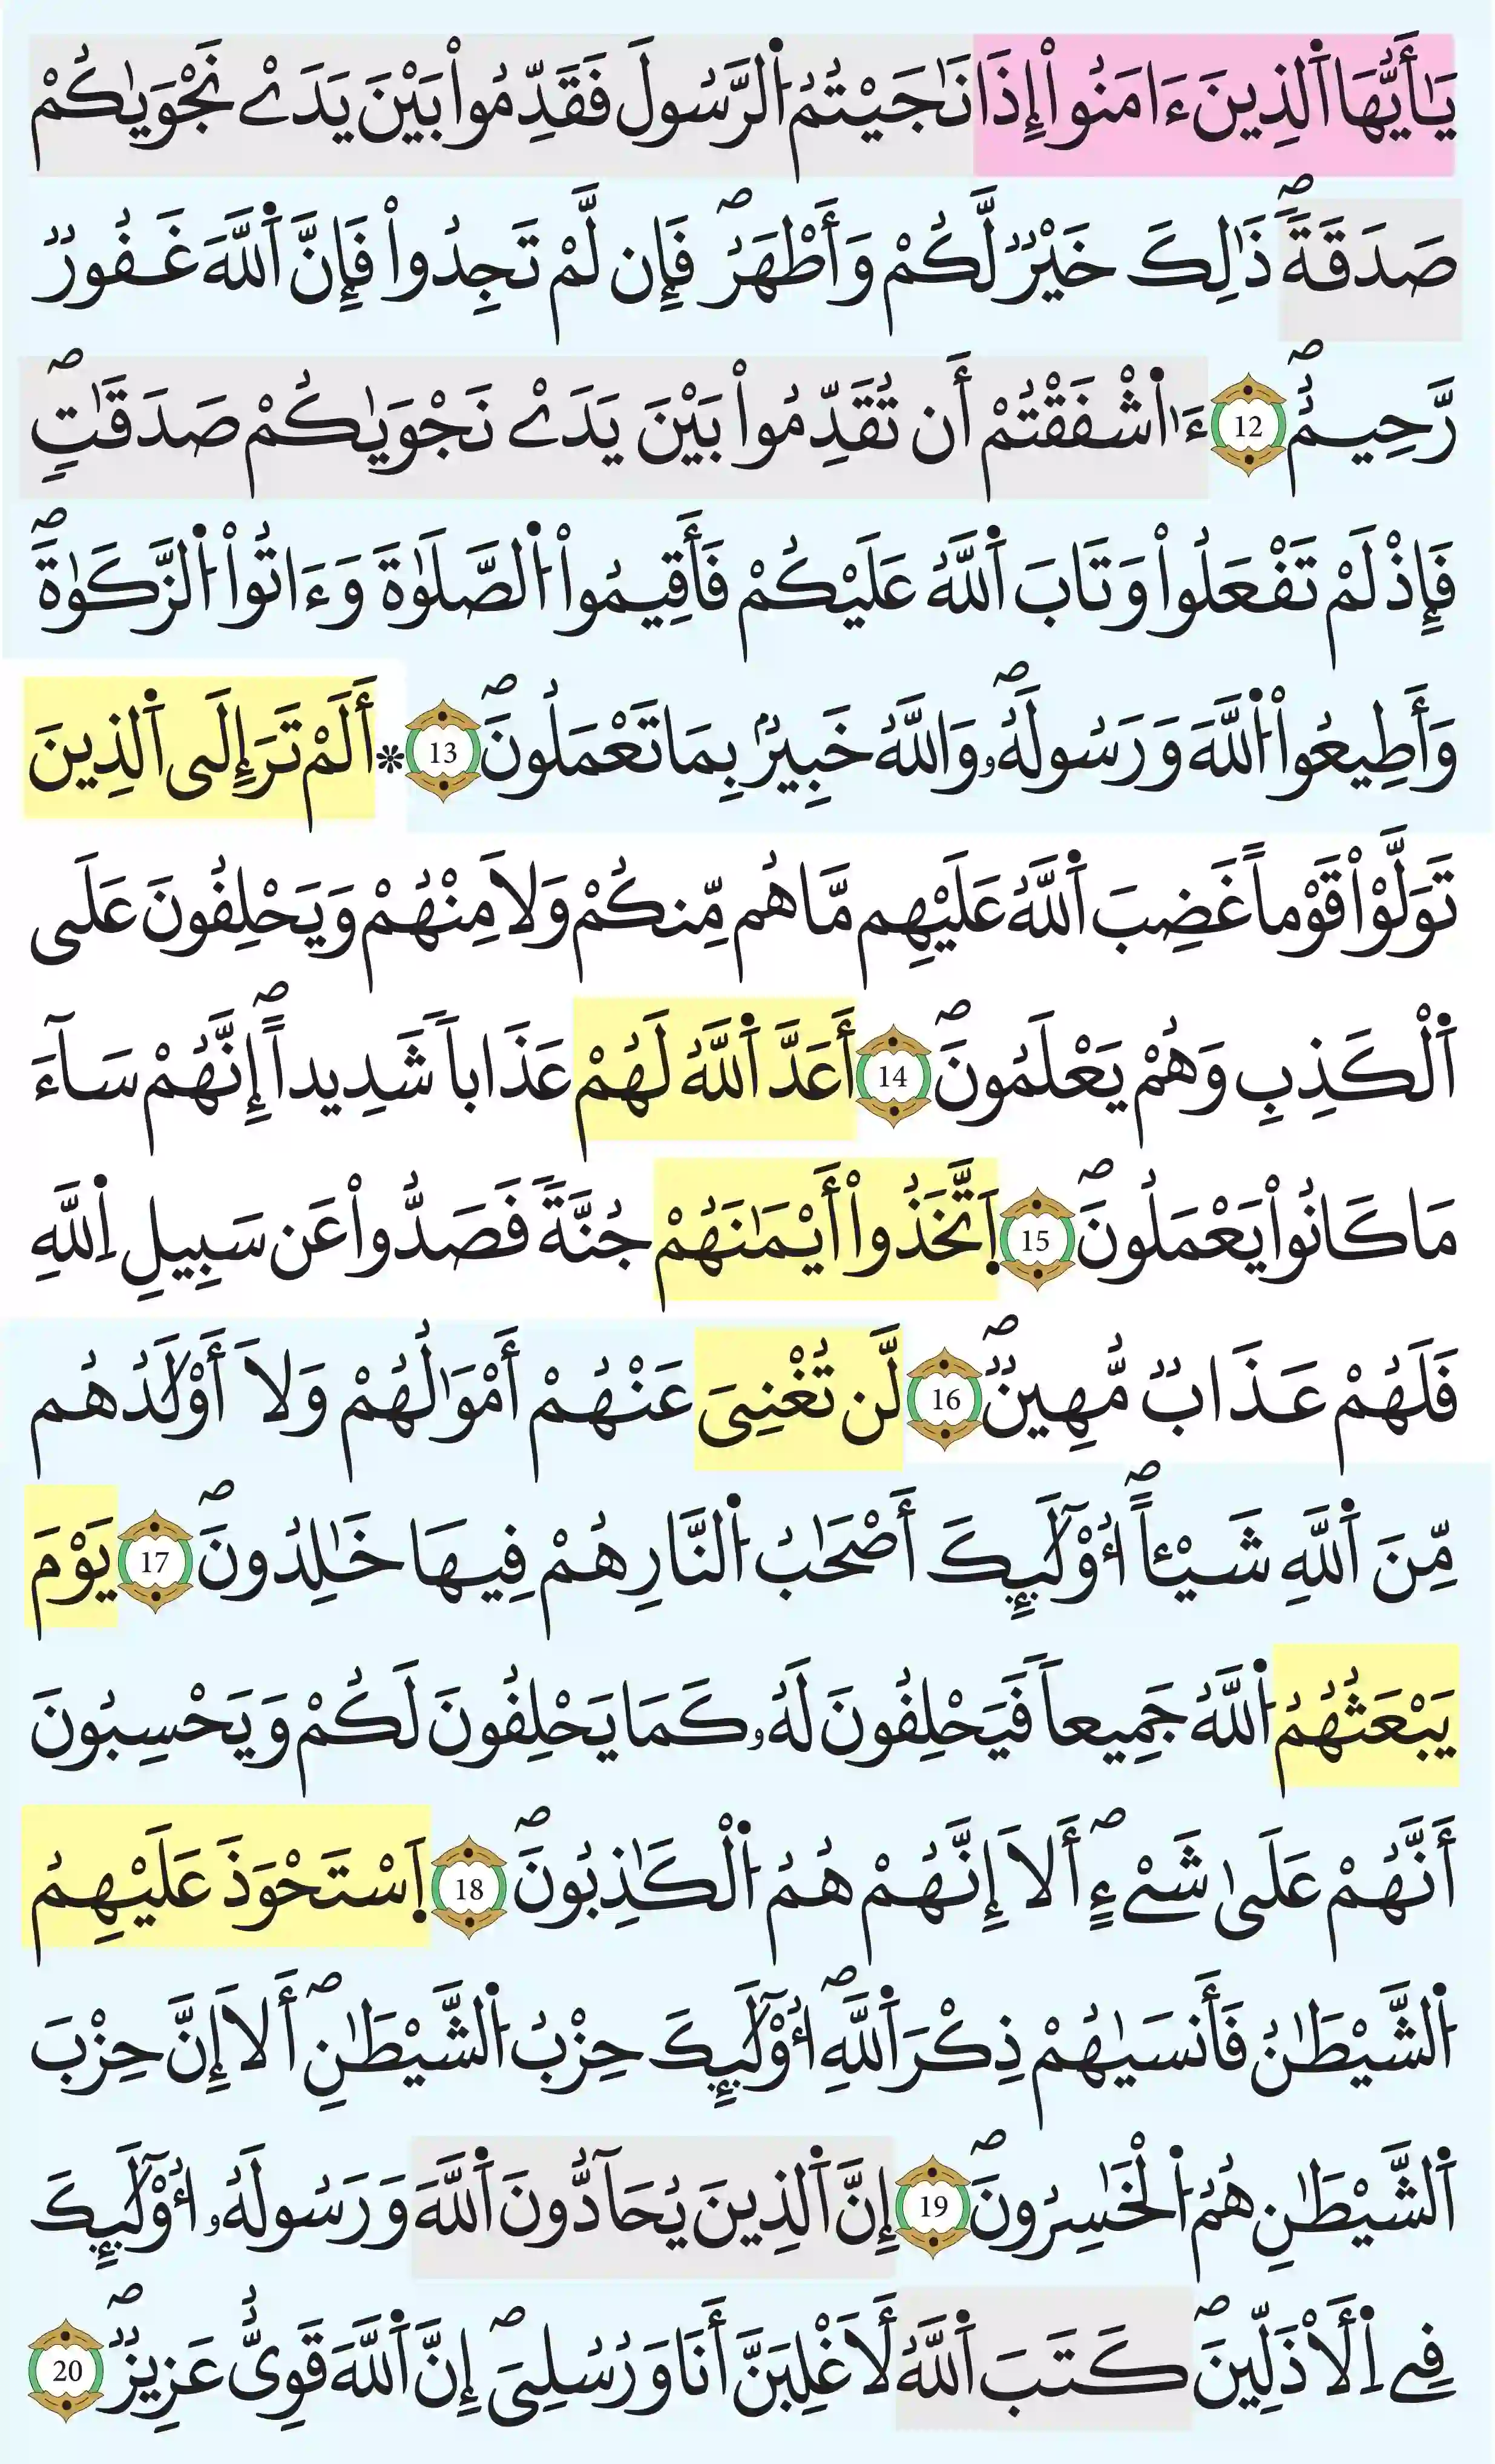 يَٰأَيُّهَا اَ۬لذِينَ ءَامَنُوٓاْ إِذَا نَٰجَيْتُمُ اُ۬لرَّسُولَ فَقَدِّمُواْ بَيْنَ يَدَےْ نَجْوَيٰكُمْ
صَدَقَةٗۖ ذَٰلِكَ خَيْرٞ لَّكُمْ وَأَطْهَرُۖ فَإِن لَّمْ تَجِدُواْ فَإِنَّ اَ۬للَّهَ غَفُورٞ
رَّحِيمٌۖ 12 ءَآشْفَقْتُمْ أَن تُقَدِّمُواْ بَيْنَ يَدَےْ نَجْوَيٰكُمْ صَدَقَٰتٖۖ
فَإِذْ لَمْ تَفْعَلُواْ وَتَابَ اَ۬للَّهُ عَلَيْكُمْ فَأَقِيمُواْ اُ۬لصَّلَوٰةَ وَءَاتُواْ اُ۬لزَّكَوٰةَۖ
وَأَطِيعُواْ اُ۬للَّهَ وَرَسُولَهُۥۖ وَاللَّهُ خَبِيرُۢ بِمَا تَعْمَلُونَۖ 13 * أَلَمْ تَرَ إِلَى اَ۬لذِينَ
تَوَلَّوْاْ قَوْماً غَضِبَ اَ۬للَّهُ عَلَيْهِم مَّا هُم مِّنكُمْ وَلَا مِنْهُمْ وَيَحْلِفُونَ عَلَى
اَ۬لْكَذِبِ وَهُمْ يَعْلَمُونَۖ 14 أَعَدَّ اَ۬للَّهُ لَهُمْ عَذَاباٗ شَدِيداًۖ إِنَّهُمْ سَآءَ
مَا كَانُواْ يَعْمَلُونَۖ 15 اَ۪تَّخَذُوٓاْ أَيْمَٰنَهُمْ جُنَّةٗ فَصَدُّواْ عَن سَبِيلِ اِ۬للَّهِ
فَلَهُمْ عَذَابٞ مُّهِينٞۖ 16 لَّن تُغْنِىَ عَنْهُمْ أَمْوَٰلُهُمْ وَلَا أَوْلَٰدُهُم
مِّنَ اَ۬للَّهِ شَيْـٔاًۖ ا۟وْلَٰٓئِكَ أَصْحَٰبُ اُ۬لنَّارِ هُمْ فِيهَا خَٰلِدُونَۖ 17 يَوْمَ
يَبْعَثُهُمُ اُ۬للَّهُ جَمِيعاٗ فَيَحْلِفُونَ لَهُۥ كَمَا يَحْلِفُونَ لَكُمْ وَيَحْسِبُونَ
أَنَّهُمْ عَلَىٰ شَےْءٍۖ أَلَا إِنَّهُمْ هُمُ اُ۬لْكَٰذِبُونَۖ 18 اَ۪سْتَحْوَذَ عَلَيْهِمُ
اُ۬لشَّيْطَٰنُ فَأَنسَيٰهُمْ ذِكْرَ اَ۬للَّهِۖ أُوْلَٰٓئِكَ حِزْبُ اُ۬لشَّيْطَٰنِۖ أَلَا إِنَّ حِزْبَ
اَ۬لشَّيْطَٰنِ هُمُ اُ۬لْخَٰسِرُونَۖ 19 إِنَّ اَ۬لذِينَ يُحَآدُّونَ اَ۬للَّهَ وَرَسُولَهُۥ أُوْلَٰٓئِكَ
فِے اِ۬لْأَذَلِّينَۖ كَتَبَ اَ۬للَّهُ لَأَغْلِبَنَّ أَنَا وَرُسُلِىَۖ إِنَّ اَ۬للَّهَ قَوِىٌّ عَزِيزٞۖ 20